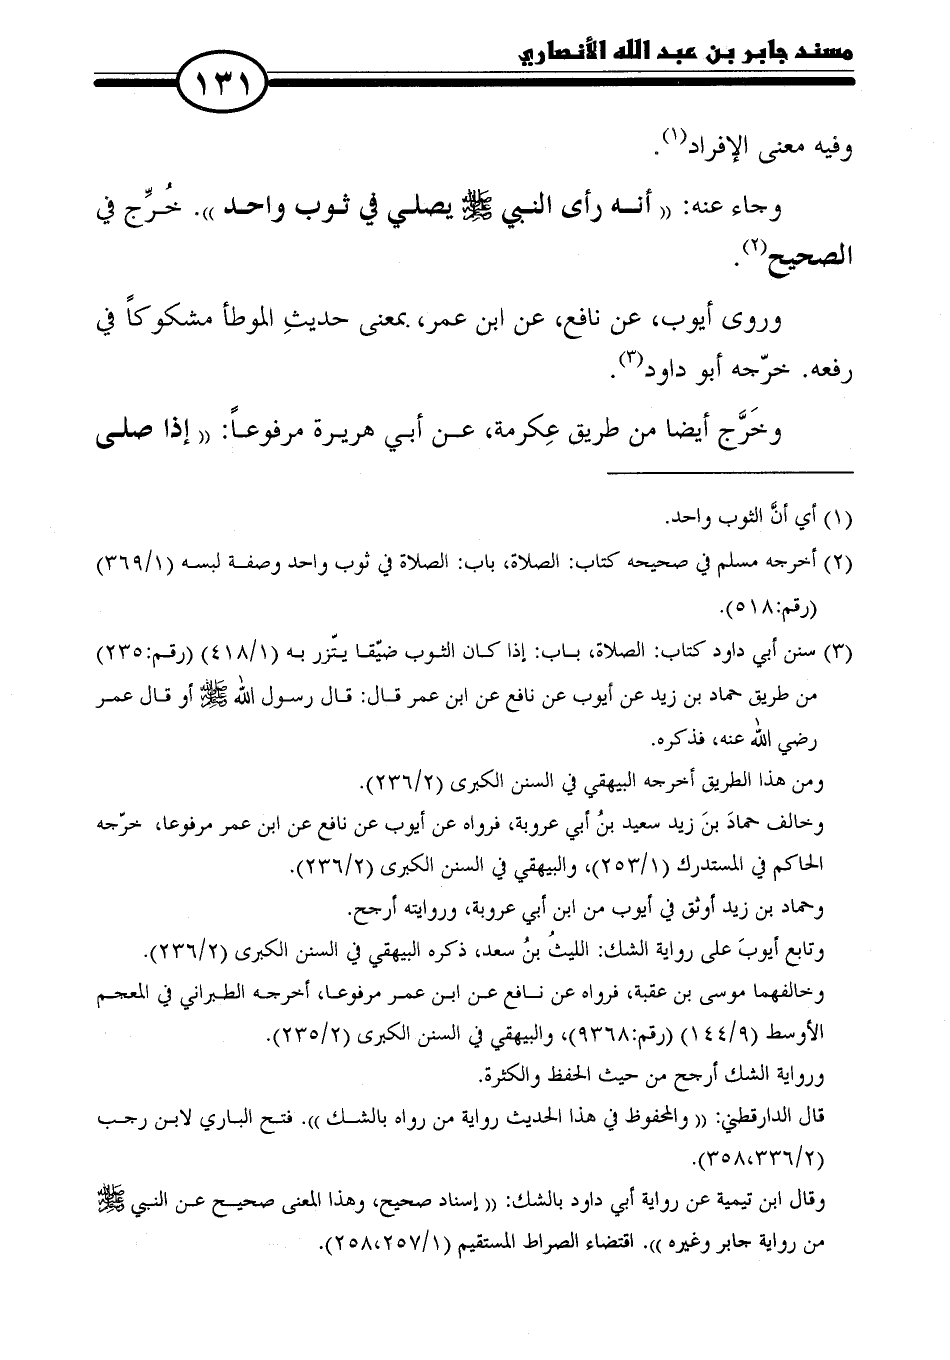 مسند جابر بن عبد الله الأنصاري
١٣١
وفيه معنى الإفراد(١).
وجاء عنه: (( أنـه رأى النبي ﷺ يصلي في ثوب واحد )). خُرِّج في
الصحيح(٢).
وروى أيوب، عن نافع، عن ابن عمر، بمعنى حديثِ الموطأ مشكوكاً في
رفعه. خرّجه أبو داود(٣).
وخَرَّج أيضا من طريق عِكرمة، عـن أبي هريرة مرفوعاً: (( إذا صلى
(١) أي أنَّ الثوب واحد.
(٢) أخرجه مسلم في صحيحه كتاب: الصلاة، باب: الصلاة في ثوب واحد وصفـة لبسه (٣٦٩/١)
(رقم:٥١٨).
(٣) سنن أبي داود كتاب: الصلاة، بـاب: إذا كـان الثوب ضيّقـا يـتّزر بـه (٤١٨/١) (رقـم:٢٣٥)
من طريق حماد بن زيد عن أيوب عن نافع عن ابن عمر قـال: قـال رسـول الله ﷺ أو قـال عمـر
رضي الله عنه، فذكره.
ومن هذا الطريق أخرجه البيهقي في السنن الكبرى (٢٣٦/٢).
وخالف حمادَ بنَ زيد سعيد بنُ أبي عروبة، فرواه عن أيوب عن نافع عن ابن عمر مرفوعا، خرّجه
الحاكم في المستدرك (٢٥٣/١)، والبيهقي في السنن الكبرى (٢٣٦/٢).
وحماد بن زيد أوثق في أيوب من ابن أبي عروبة، وروايته أرجح.
وتابع أيوبَ على رواية الشك: الليثُ بنُ سعد، ذكره البيهقي في السنن الكبرى (٢٣٦/٢).
وخالفهما موسى بن عقبة، فرواه عن نـافع عـن ابـن عمر مرفوعـا، أخرجـه الطبراني في المعجـم
الأوسط (١٤٤/٩) (رقم:٩٣٦٨)، والبيهقي في السنن الكبرى (٢٣٥/٢).
ورواية الشك أرجح من حيث الحفظ والكثرة.
قال الدارقطني: (( والمحفوظ في هذا الحديث رواية من رواه بالشـك )). فتـح البـاري لابـن رجـب
(٣٥٨،٣٣٦/٢).
وقال ابن تيمية عن رواية أبي داود بالشك: (( إسناد صحيح، وهذا المعنى صحيـح عـن النبي ﷺ
من رواية جابر وغيره )). اقتضاء الصراط المستقيم (٢٥٨،٢٥٧/١).